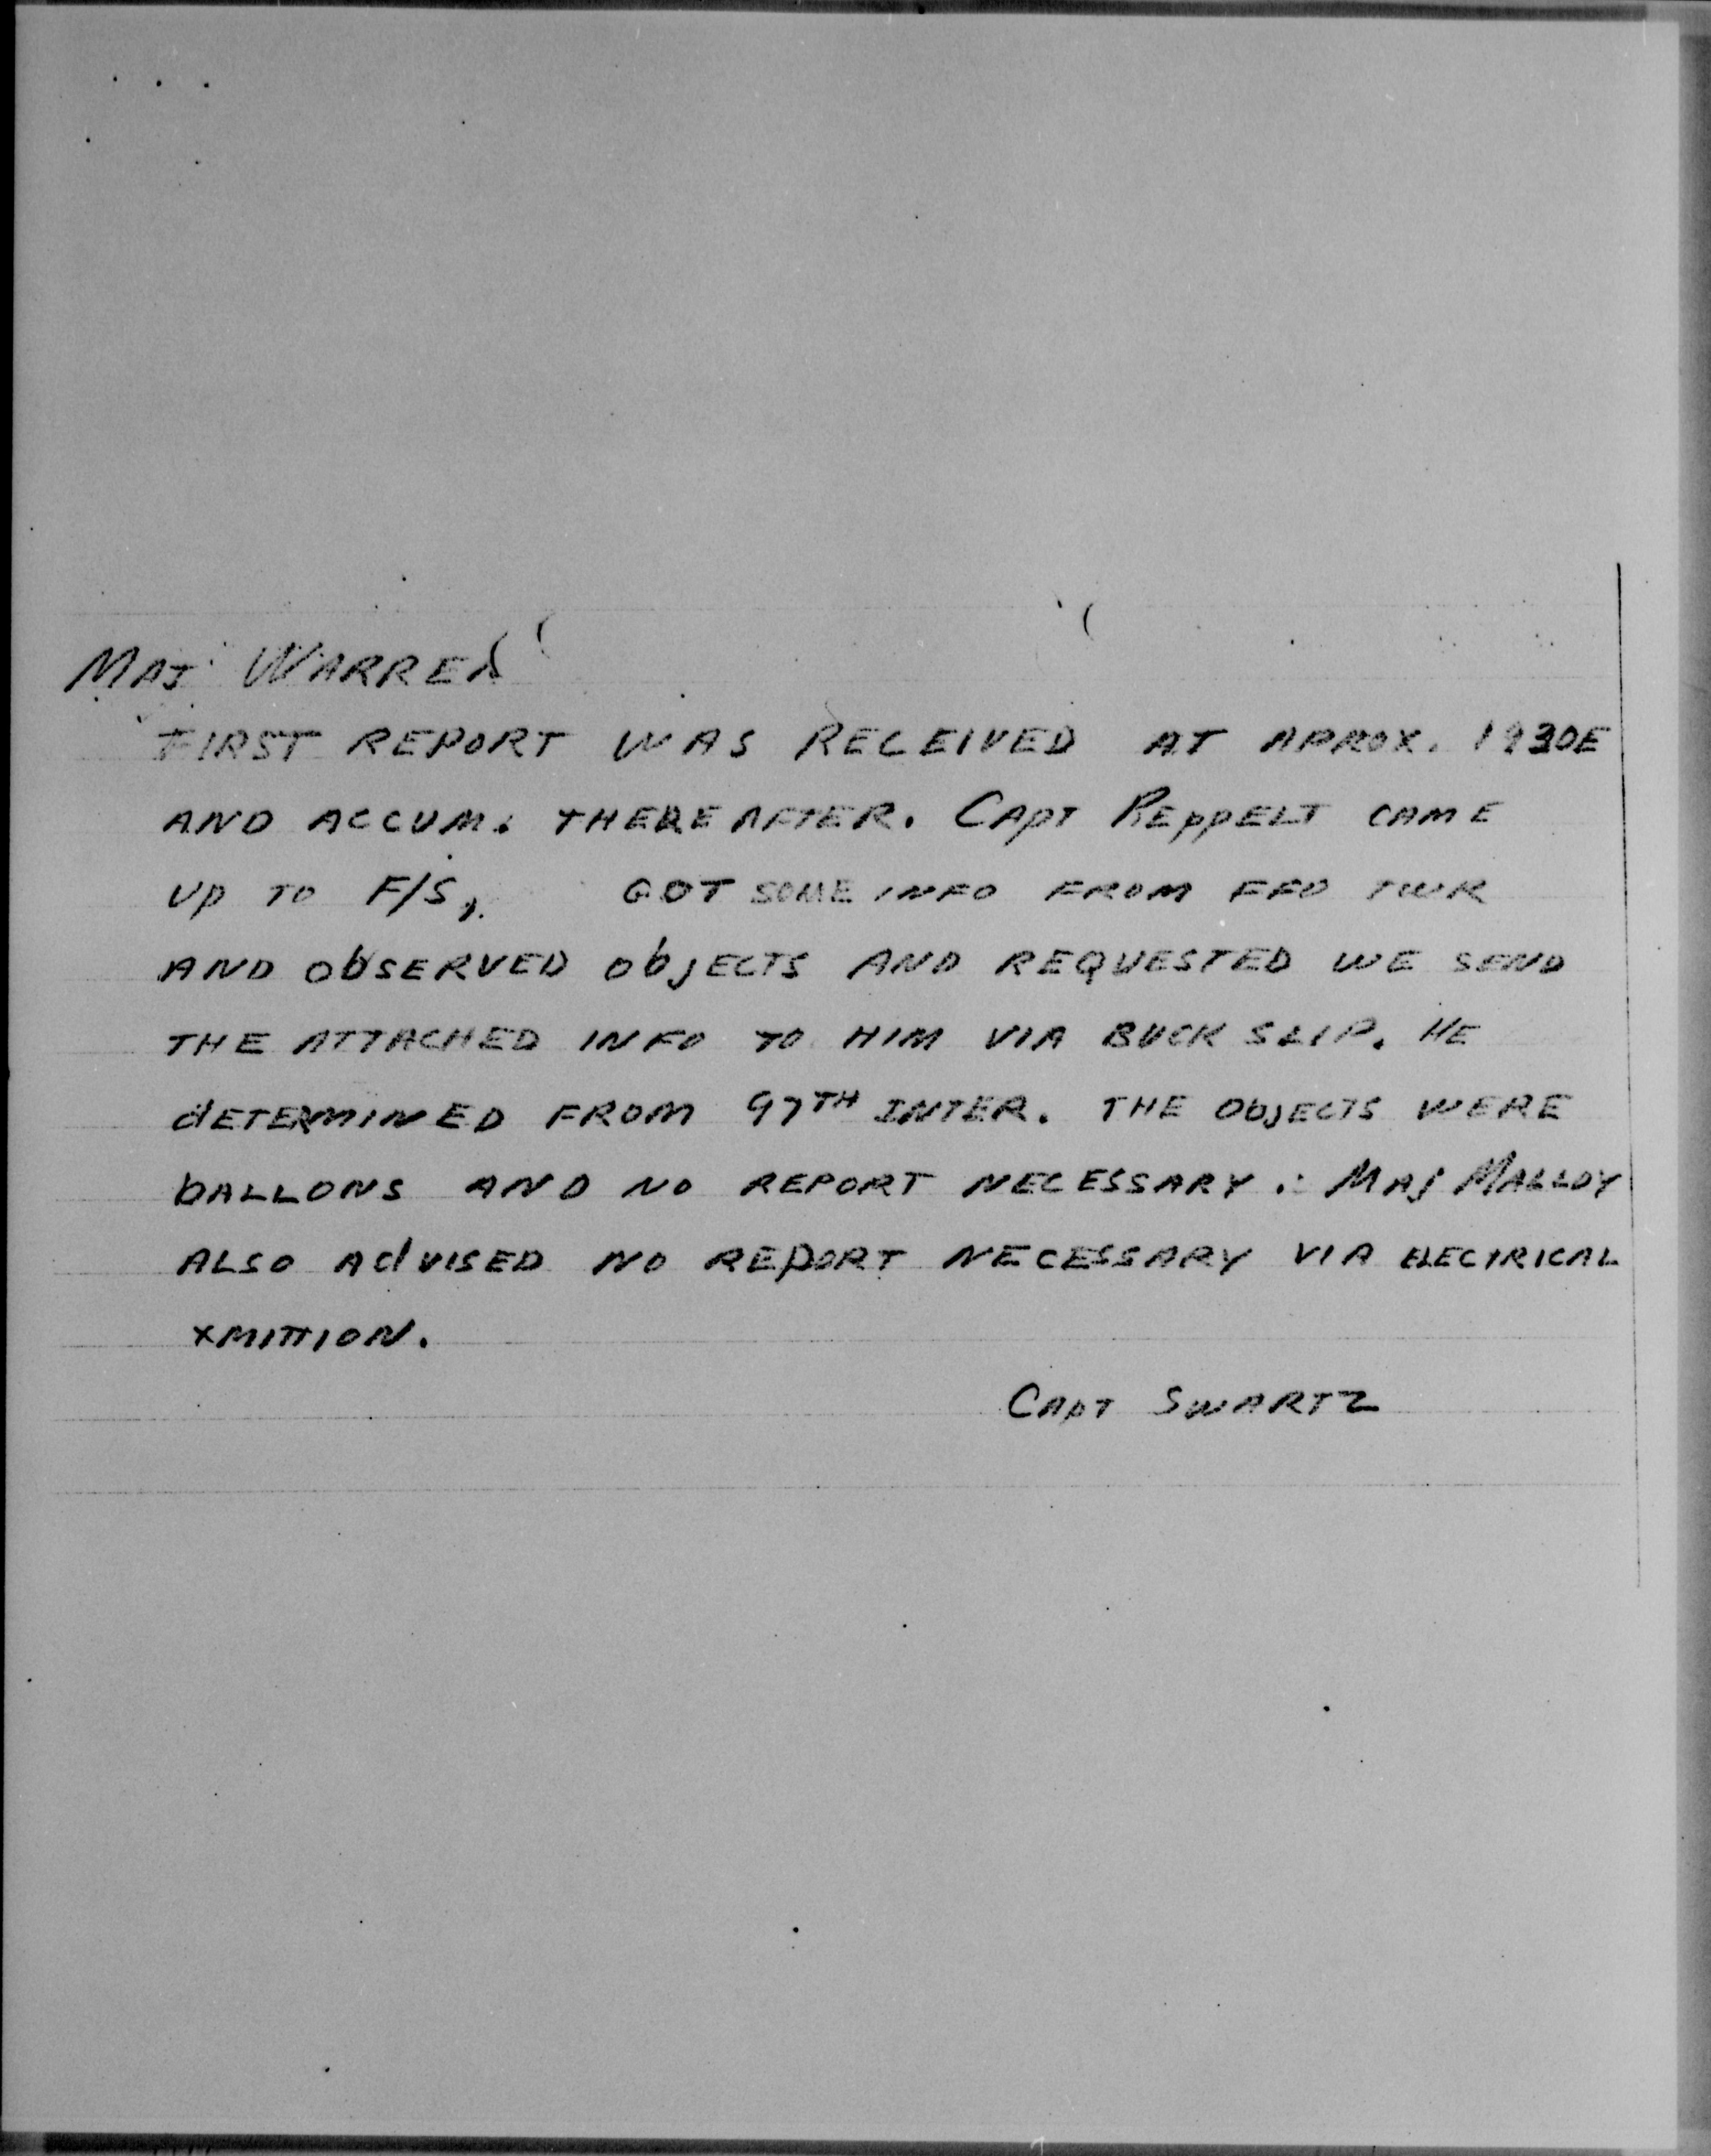 MAJ WARREN
FIRST REPORT WAS RECEIVED AT APROX. 1930E
AND ACCUM. THEREAFTER. CAPT REPPELT CAME
UP TO F/S, GOT SOME INFO FROM FFO TWR
AND ObSERVED ObJECTS AND REQUESTED WE SEND
THE ATTACHED INFO TO HIM VIA BUCK SLIP. HE
dETERMINED FROM 97TH INTER. THE ObJECTS WERE
bALLONS AND NO REPORT NECESSARY. MAJ MALLOY
ALSO AdVISED NO REPORT NECESSARY VIA ELECTRICAL
XMITTION.
CAPT SWARTZ